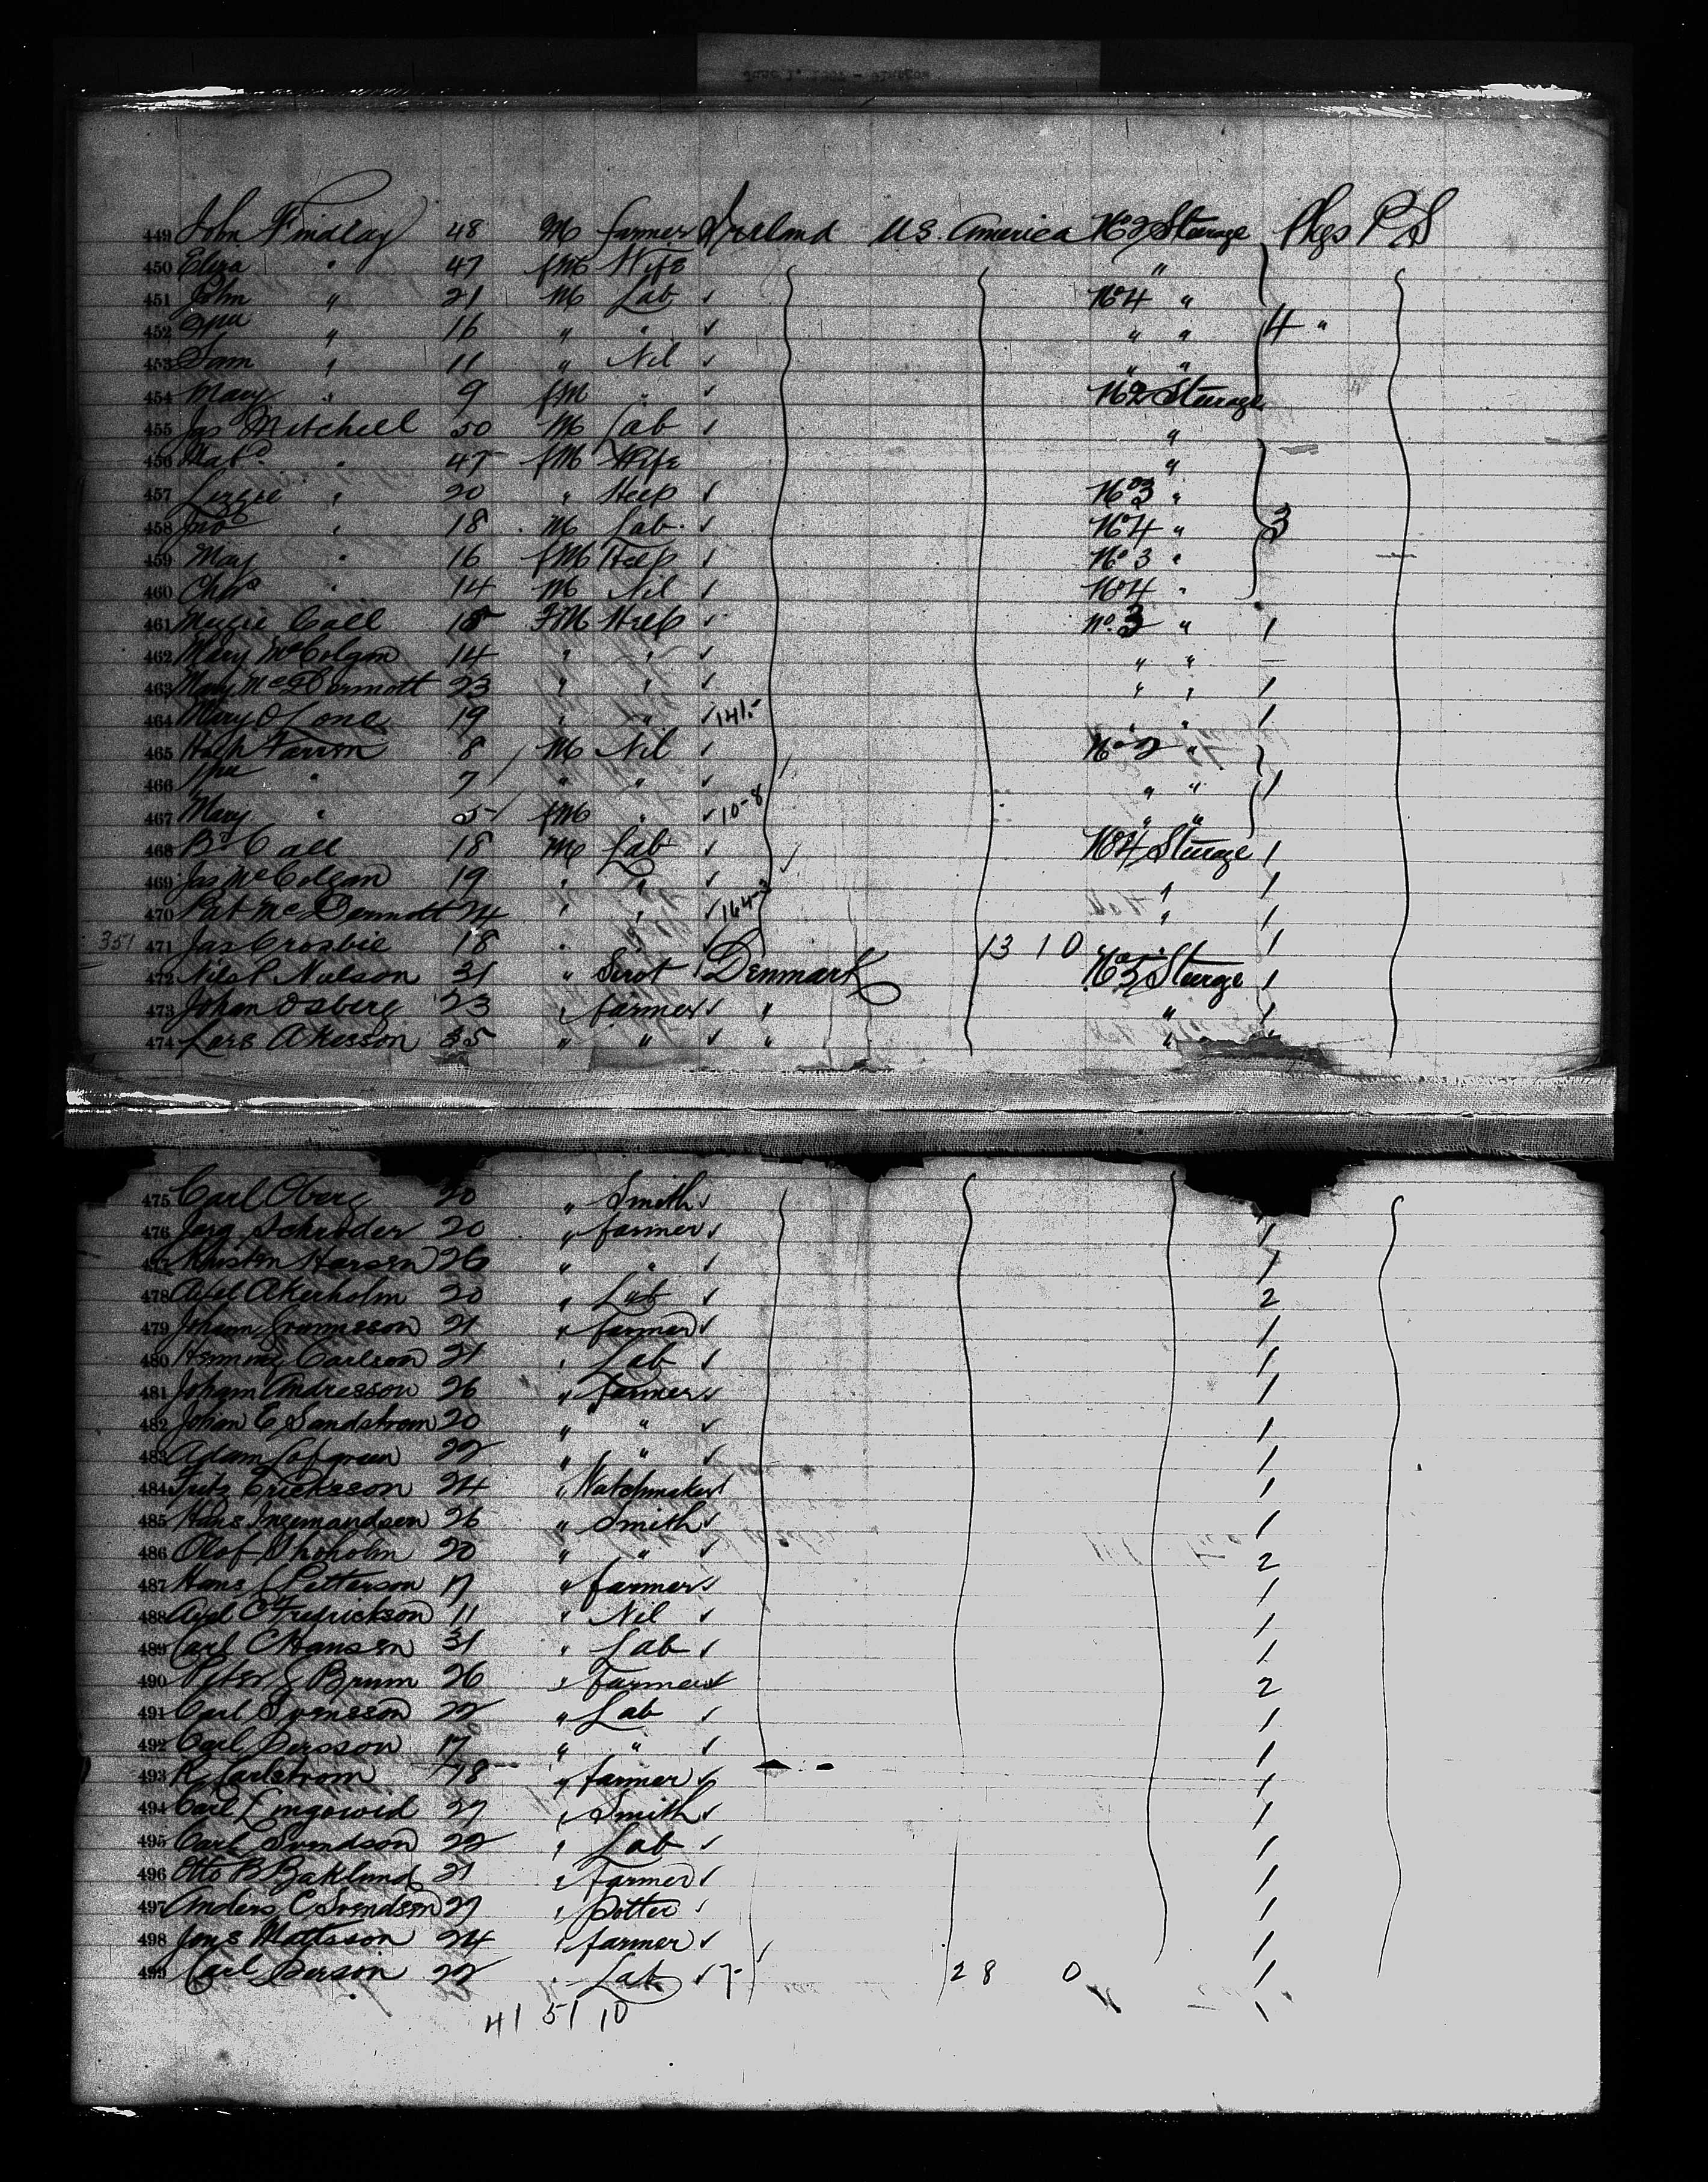 449 John Findlay 48 M farmer Ireland U.S. America No 2 Steerage Pkgs P S
450 Eliza " 47 fM Wife "
451 John " 21 M Lab ✓ No 4 "
452 " 16 " " ✓ " " 4 "
453 Sam " 11 " Nil ✓ " "
454 Mary " 9 fM " ✓ No 2 Steerage
455 Jas Mitchell 50 M Lab ✓ "
456 " 47 fM Wife "
457 Lizzie " 20 " Help ✓ No 3 "
458 Jno " 18 M Lab ✓ No 4 " 3
459 May " 16 fM Help ✓ No 3 "
460 Chas " 14 M Nil ✓ No 4 "
461 Call 18 FM Help ✓ No. 3 " 1
462 Mary McColgan 14 " " ✓ " "
463 Mary McDermott 23 " " ✓ " " 1
464 Mary 19 " " ✓ " " 1
465 Hugh Farren 8 M Nil ✓ No 2 "
466 " 7 " " ✓ " " 1
467 Mary " 5 fM " ✓ 10-8 " "
468 Call 18 M Lab ✓ No 4 Steerage 1
469 Jas McColgan 19 " " ✓ " 1
470 Pat McDermott 24 " " ✓ " 1
351 471 Jas Crosbie 18 " " ✓ 13 1 0 " 1
472 Nils P Nelson 31 " Denmark Steerge 1
473 Johan Osberg 23 " farmer ✓ " " 1
474 Lars Akesson 35 " " ✓ " " "
475 Carl Oberg 20 " Smith ✓
476 Jorg Schroder 20 " farmer ✓ 1
477 Kristen Hansen 26 " " ✓ 1
478 Axel Akerholm 20 " Lab ✓ 2
479 Johann 21 " farmer ✓ 1
480 Henning Carlson 21 " Lab ✓ 1
481 Joham Andresson 26 " farmer ✓ 1
482 Johan E Sandstrom 20 " " ✓ 1
483 Adam Lofgreen 22 " " ✓ 1
484 Fritz Erickson 24 " Watchmaker ✓ 1
485 Hans Ingemandsen 26 " Smith ✓ 1
486 Olof 20 " " ✓ 2
487 Hans Petterson 17 " farmer ✓ 1
488 Axel C Fredrickson 11 " Nil ✓ 1
489 Carl C Hansen 31 " Lab ✓ 1
490 Peter Brum 26 " Farmer ✓ 2
491 Carl Svensson 22 " Lab ✓ 1
492 Carl Persson 17 " " ✓ 1
493 K Carlstrom 18 " farmer ✓ 1
494 Carl 27 " Smith ✓ 1
495 Carl Svendson 22 " Lab ✓ 1
496 Otto B 21 " Farmer ✓ 1
497 Anders C Svendsen 27 " Potter ✓ 1
498 Jons Mattsson 24 " farmer ✓ 1
499 Carl Person 22 " Lab ✓ 7- 28 0 1
41 51 10 1